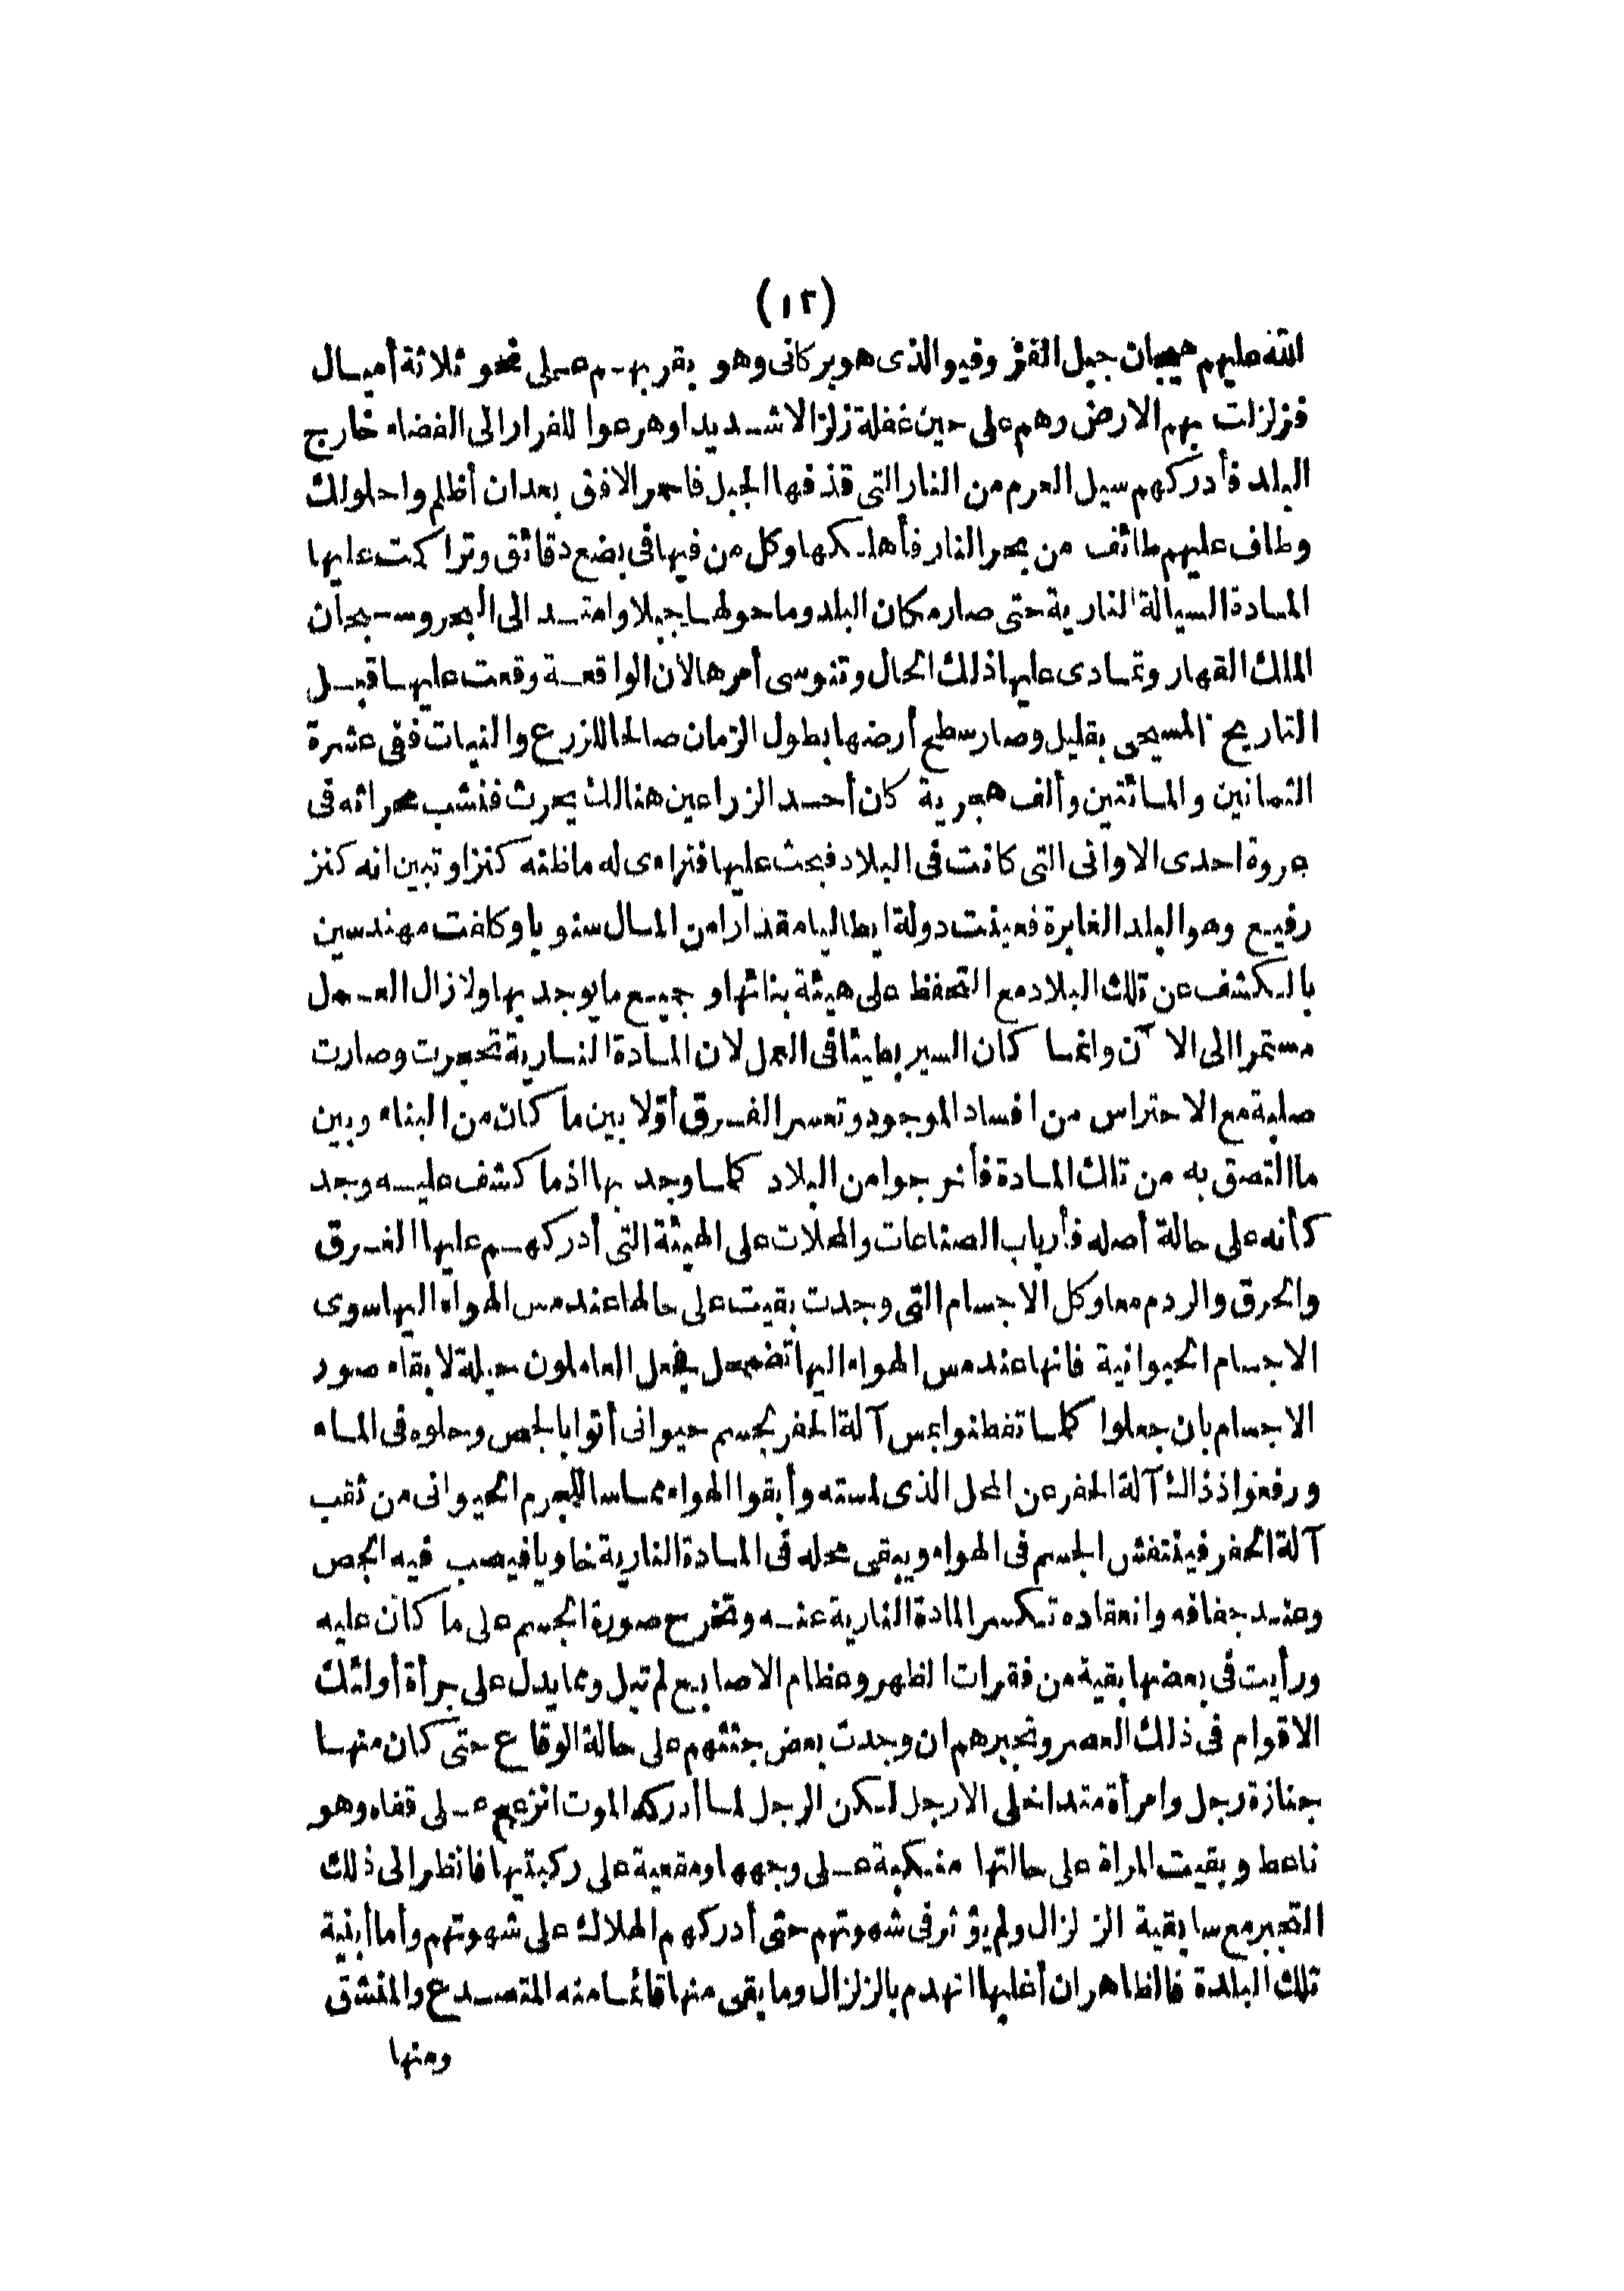 (١٢)
الله عليهم هيجان جبل الفز وفيو الذى هو بركانى وهو بقربهم على نحو ثلاثة أميال
فزلزلت بهم الارض وهم على حين غفلة زلزالا شديدا وهرعوا للفرار الى الفضاء خارج
البلد فأدركهم سيل العرم من النار التى قذفها الجبل فاحمر الافق بعد ان أظلم واحلولك
وطاف عليهم طائف من بحر النار فأهلكها وكل من فيها فى بضع دقائق وتراكمت عليها
المادة السيالة النارية حتى صار مكان البلد وما حولها جبلا وامتد الى البحر وسبحان
الملك القهار وتمادى عليها ذلك الحال وتنوسى أمرها لان الواقعة وقعت عليها قبل
التاريخ المسيحى بقليل وصار سطح أرضها بطول الزمان صالحا للزرع والنبات ففى عشرة
الثمانين والمائتين وألف هجرية كان أحد الزراعين هنالك يحرث فنشب محراثه فى
عروة احدى الاوانى التى كانت فى البلاد فبحث عليها فتراءى له ما ظنه كنزا وتبين انه كنز
رفيع وهو البلد الغابرة فعينت دولة ايطاليا مقدارا من المال سنويا وكلفت مهندسين
بالكشف عن تلك البلاد مع التحفظ على هيئة بنائها وجميع ما يوجد بها ولا زال العمل
مستمرا الى الآن وانما كان السير بطيئا فى العمل لان المادة النارية تحجرت وصارت
صلبة مع الاحتراس من افساد الموجود وتعسر الفرق أوّلا بين ما كان من البناء وبين
ما التصق به من تلك المادة فأخرجوا من البلاد كلما وجد بها اذ ما كشف عليه وجد
كأنه على حالة أصله فأرباب الصناعات والمحلات على الهيئة التى أدركهم عليها الغرق
والحرق والردم معا وكل الاجسام التى وجدت بقيت على حالها عند مس الهواء اليها سوى
الاجسام الحيوانية فانها عند مس الهواء اليها تضمحل فجعل العاملون حيلة لابقاء صور
الاجسام بان جعلوا كلما تفطنوا بمس آلة الحفر بجسم حيوانى أتوا بالجص وحلوه فى الماء
ورفعوا اذ ذاك آلة الحفر عن المحل الذى لمسته وأبقوا الهواء مماسا للجرم الحيوانى من ثقب
آلة الحفر فينتفش الجسم فى الهواء ويبقى محله فى المادة النارية خاويا فيصب فيه الجص
وعند جفافه وانعقاده تكسر المادة النارية عنه وتخرج صورة الجسم على ما كان عليه
ورأيت فى بعضها بقية من فقرات الظهر وعظام الاصابع لم تبل ومما يدل على جرأة أولئك
الاقوام فى ذلك العصر وتجبرهم ان وجدت بعض جثثهم على حالة الوقاع حتى كان منها
جنازة رجل وامرأة متداخلى الارجل لكن الرجل لما أدركه الموت انزعج على قفاه وهو
ناعظ وبقيت المراة على حالتها منكبة على وجهها ومقعية على ركبتيها فانظر الى ذلك
التجبر مع سابقية الزلزال ولم يؤثر فى شهوتهم حتى أدركهم الهلاك على شهوتهم وأما أبنية
تلك البلدة فالظاهر ان أغلبها انهدم بالزلزال وما بقى منها قائما منه المتصدع والمنشق
ومنها